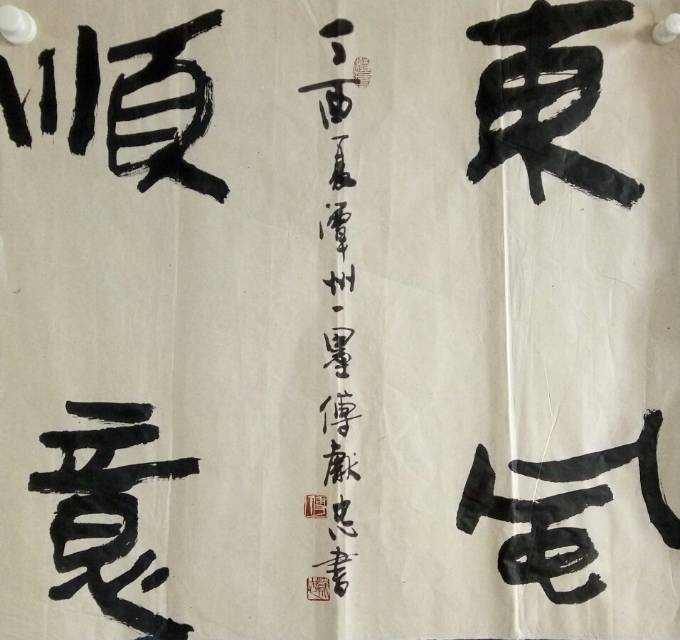 東風
順意
丁酉夏潭州一墨傅獻忠書